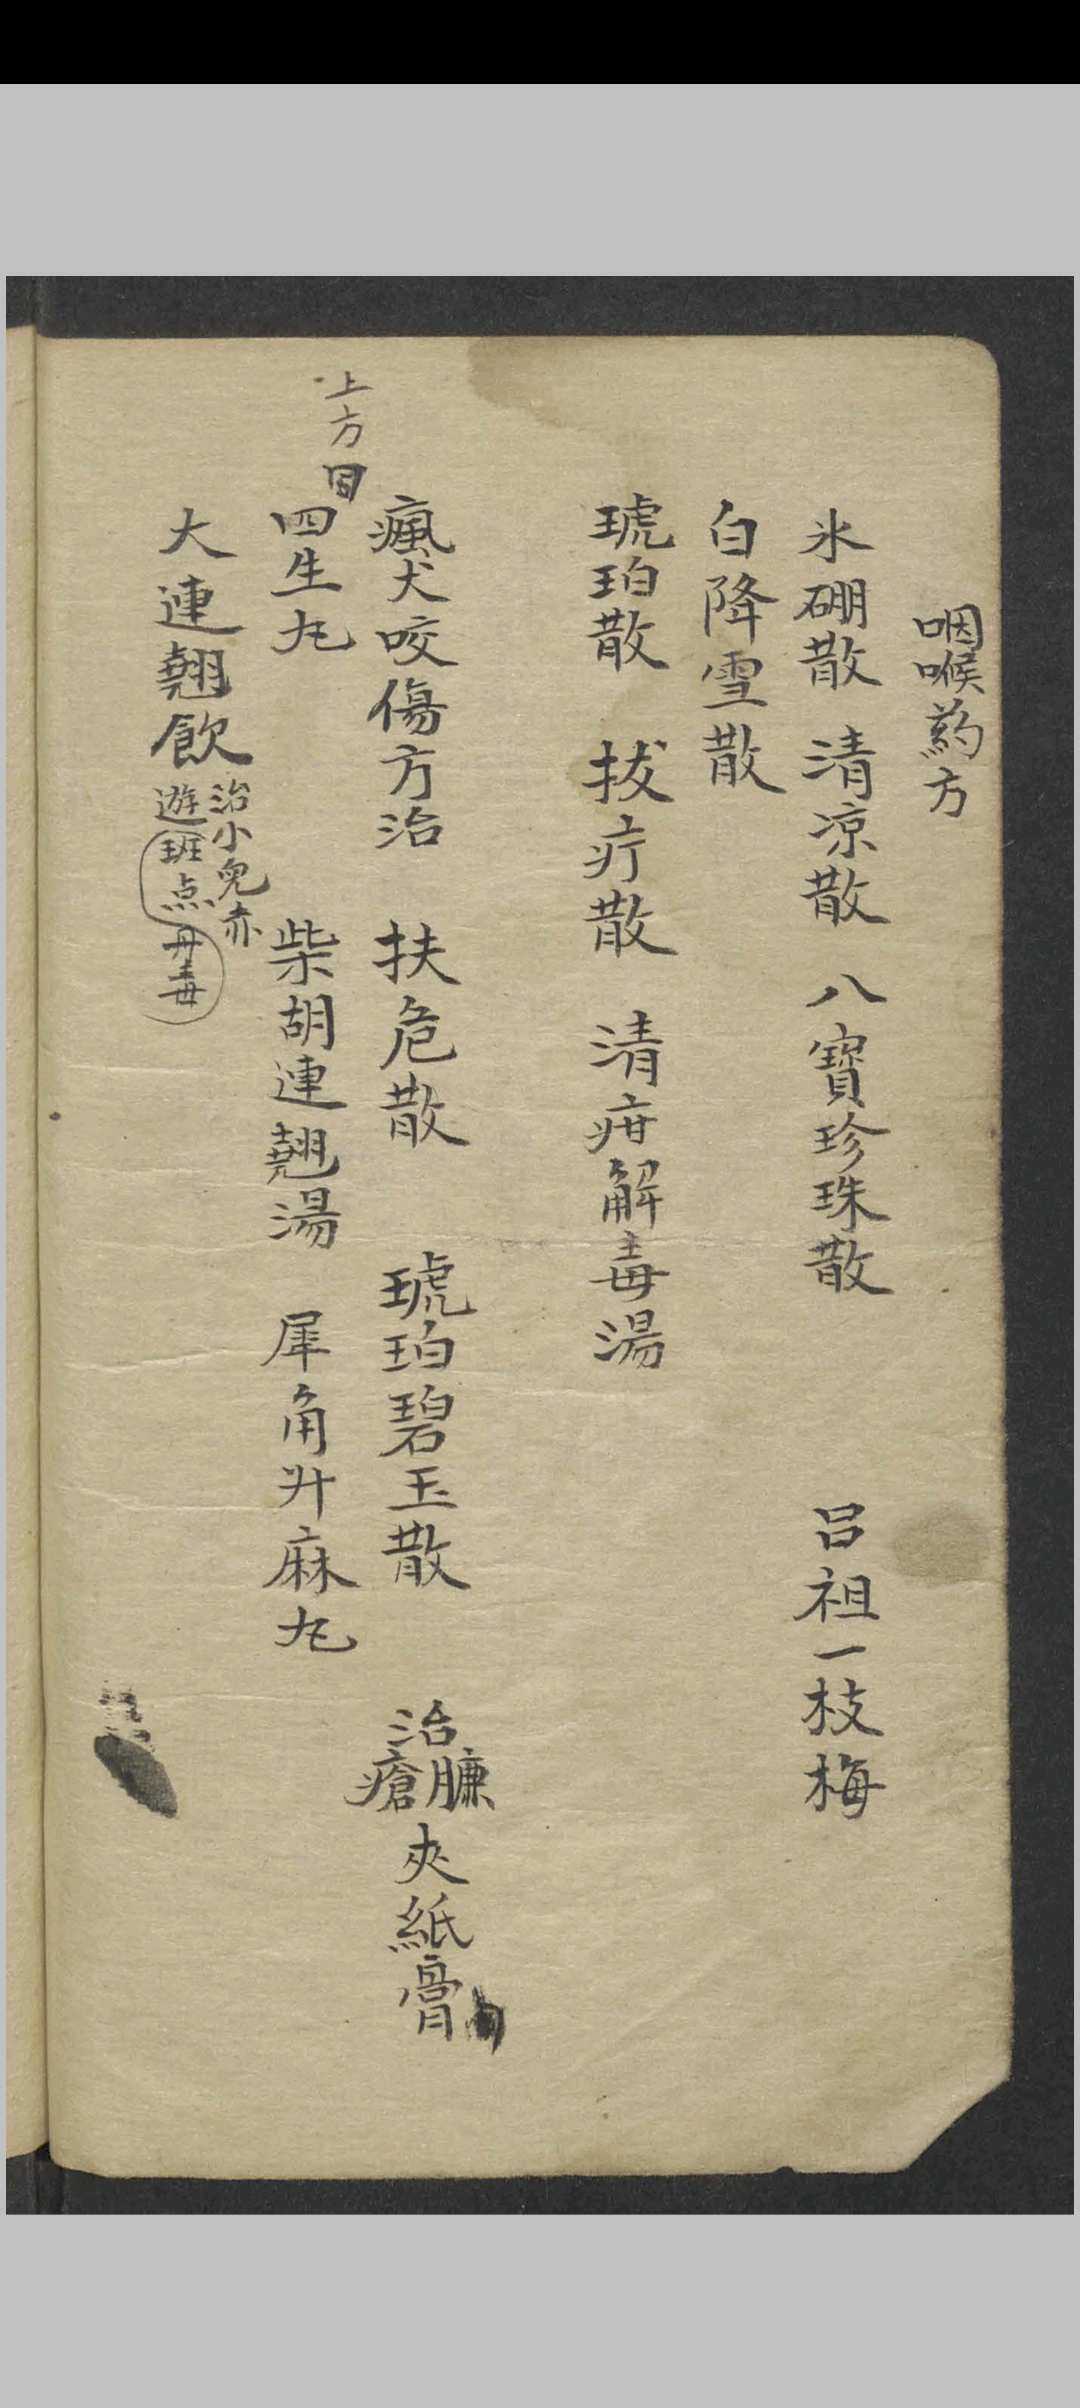 咽喉药方
氷硼散 清凉散 八寶珍珠散 吕祖一枝梅
白降雪散
琥珀散 拔疔散 清疳解毒湯
瘋犬咬傷方治 扶危散 琥珀碧玉散 治臁瘡夾紙膏
上方
四生丸 柴胡連翹湯 犀角升麻丸
大連翹飲 治小兒赤
遊班点丹毒